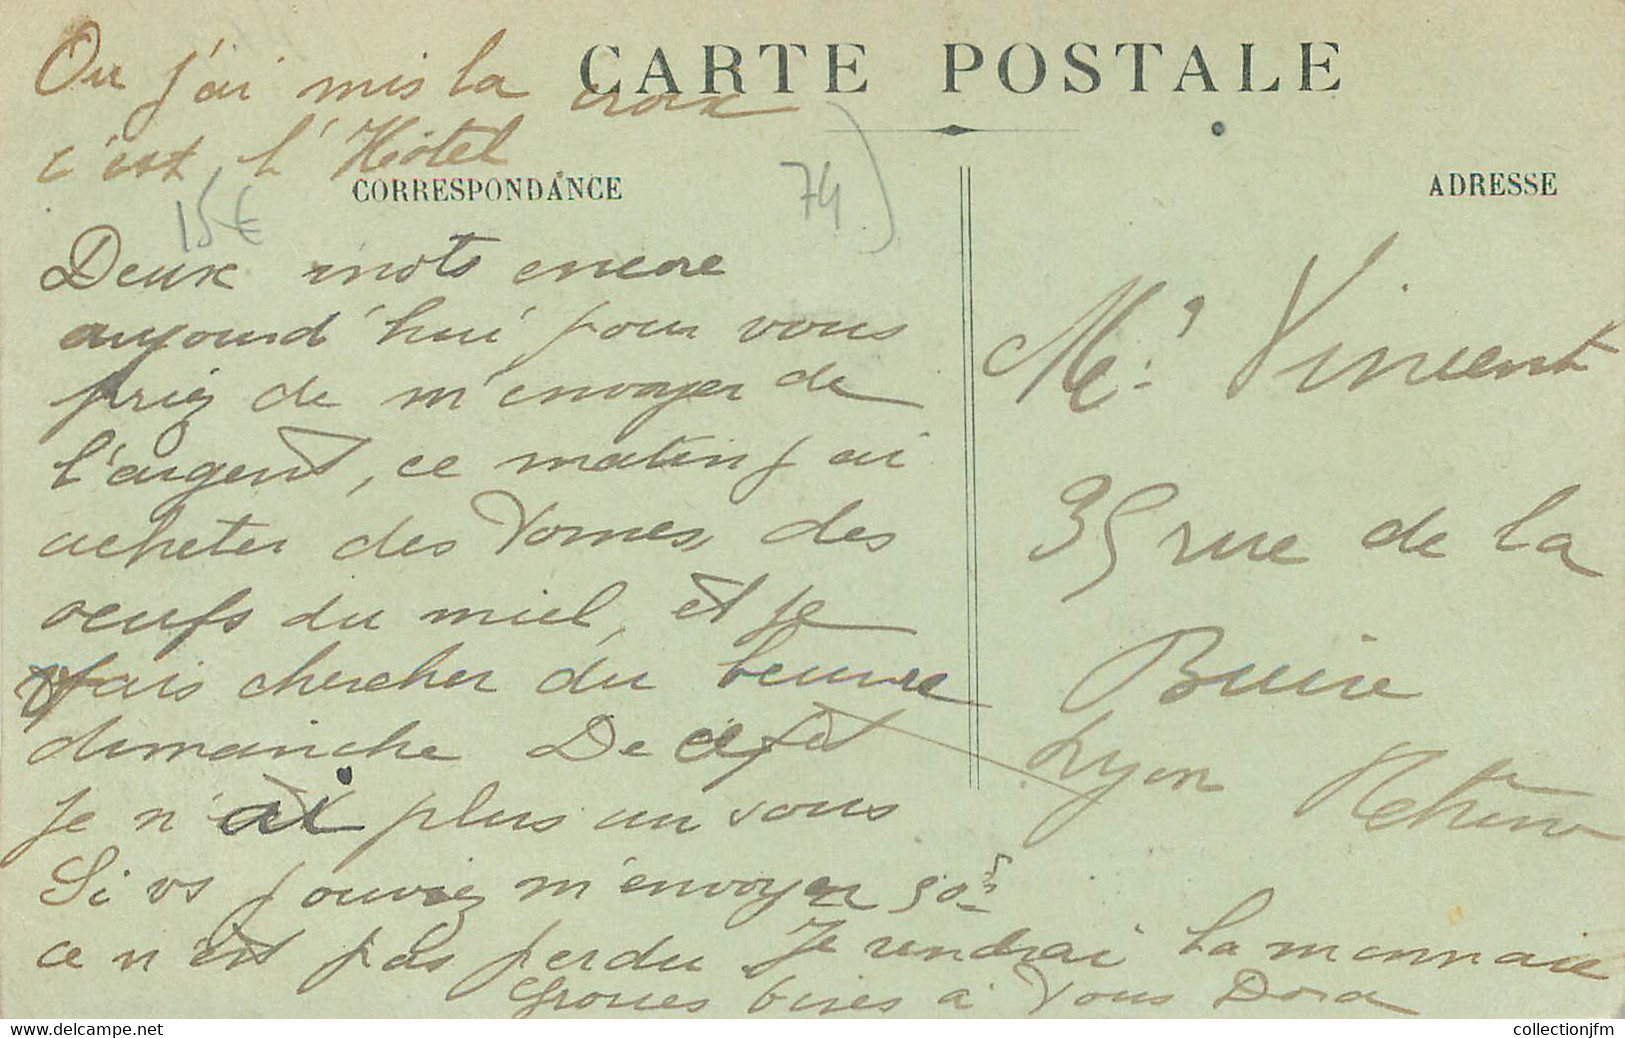 Ou j'ai mis la croix
c'est l'Hôtel
CARTE POSTALE
CORRESPONDANCE
ADRESSE
15€
74
Deux mots encore
aujourd'hui pour vous
priez de m'envoyer de
l'argent, ce matin j'ai
acheter des Pomes, des
oeufs du miel, et je
fais chercher du beurre
dimanche De cefet
je n'ai plus un sous
Si vs pouviez m'envoyer 50f
ce n'est pas perdu Je rendrai la monnaie
Groses bises a Vous Dora
Me: Vincent
35 rue de la
Buire
Lyon Rhône
collectionjfm
www.delcampe.net